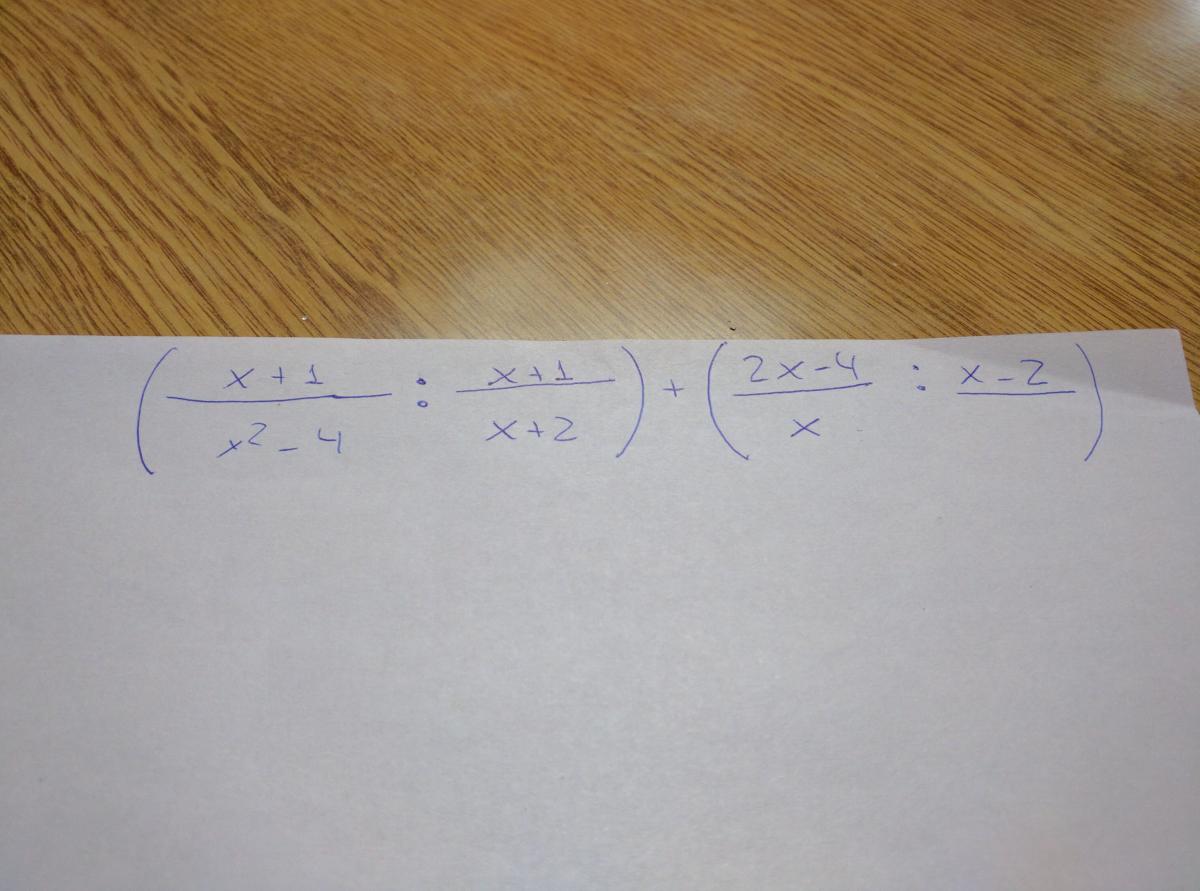 (x+1/x²-4 : x+1/x+2) + (2x-4/x : x-2/ )